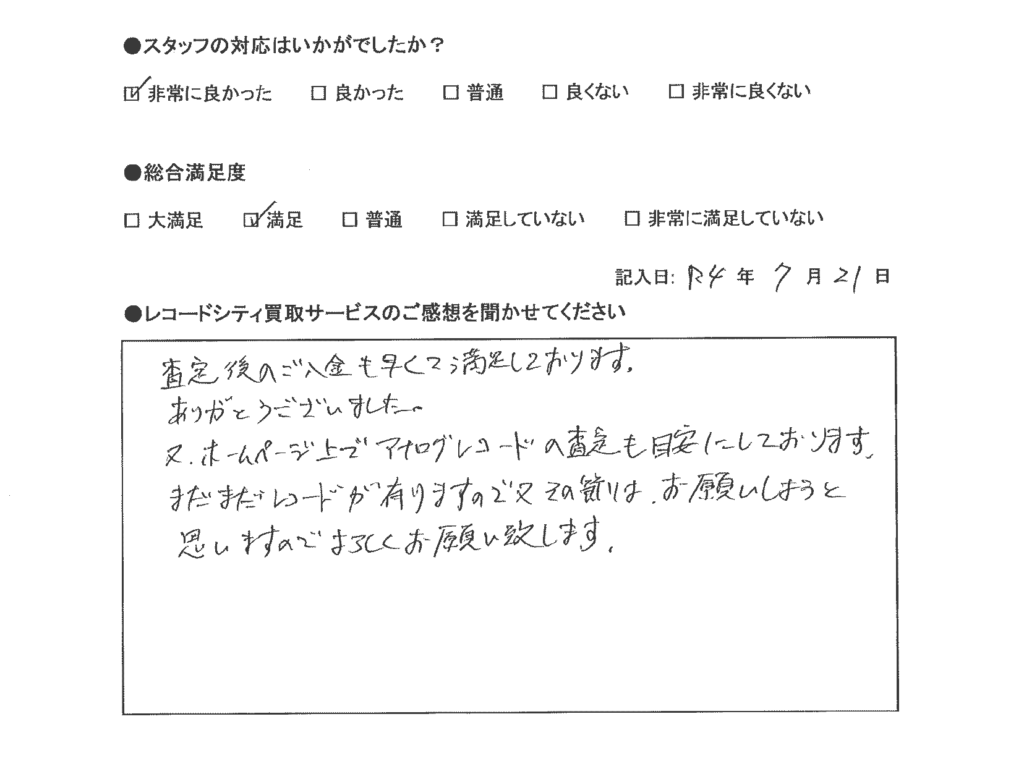 ●スタッフの対応はいかがでしたか？
☑ 非常に良かった □ 良かった □ 普通 □ 良くない □ 非常に良くない
●総合満足度
□ 大満足 ☑ 満足 □ 普通 □ 満足していない □ 非常に満足していない
記入日: R4 年 7 月 21 日
●レコードシティ買取サービスのご感想を聞かせてください
査定後のご入金も早くて満足しております。
ありがとうございました。
又、ホームページ上でアナログレコードの査定も目安にしております。
まだまだレコードが有りますので又その節は、お願いしようと
思いますのでよろしくお願い致します。